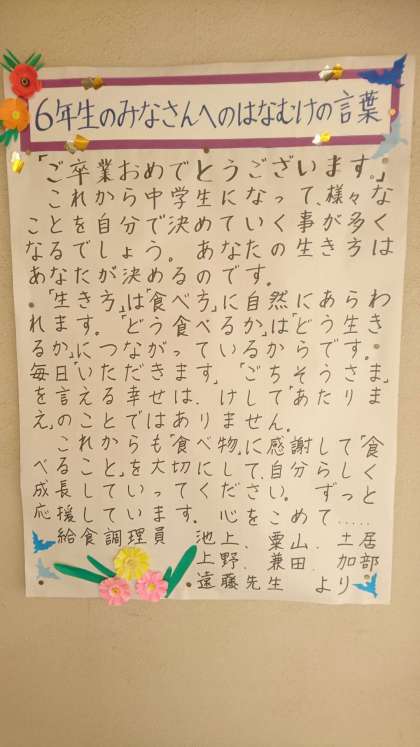 6年生のみなさんへのはなむけの言葉
「ご卒業おめでとうございます。」
これから中学生になって、様々な
ことを自分で決めていく事が多く
なるでしょう。あなたの生き方は
あなたが決めるのです。
「生き方」は「食べ方」に自然にあらわ
れます。「どう食べるか」は「どう生き
るか」につながっているからです。
毎日「いただきます」「ごちそうさま」
を言える幸せは、けして「あたりま
え」のことではありません。
これからも「食べ物」に感謝して「食
べること」を大切にして、自分らしく
成長していってください。ずっと
応援しています。心をこめて……
給食調理員 池上、粟山、土居
上野、兼田、加部
遠藤先生 より